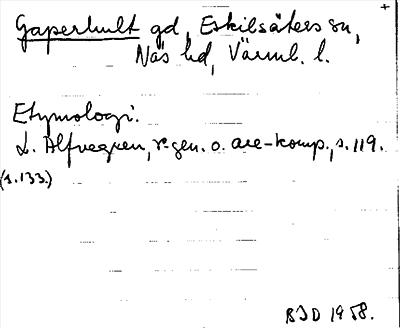 Gaperhult gd, Eskilsäters sn,
Näs hd, Värml. l.
Etymologi.
L. Alfvegren, r-gen. o. are-komp., s. 119.
(s. 133.)
BJD 1958.